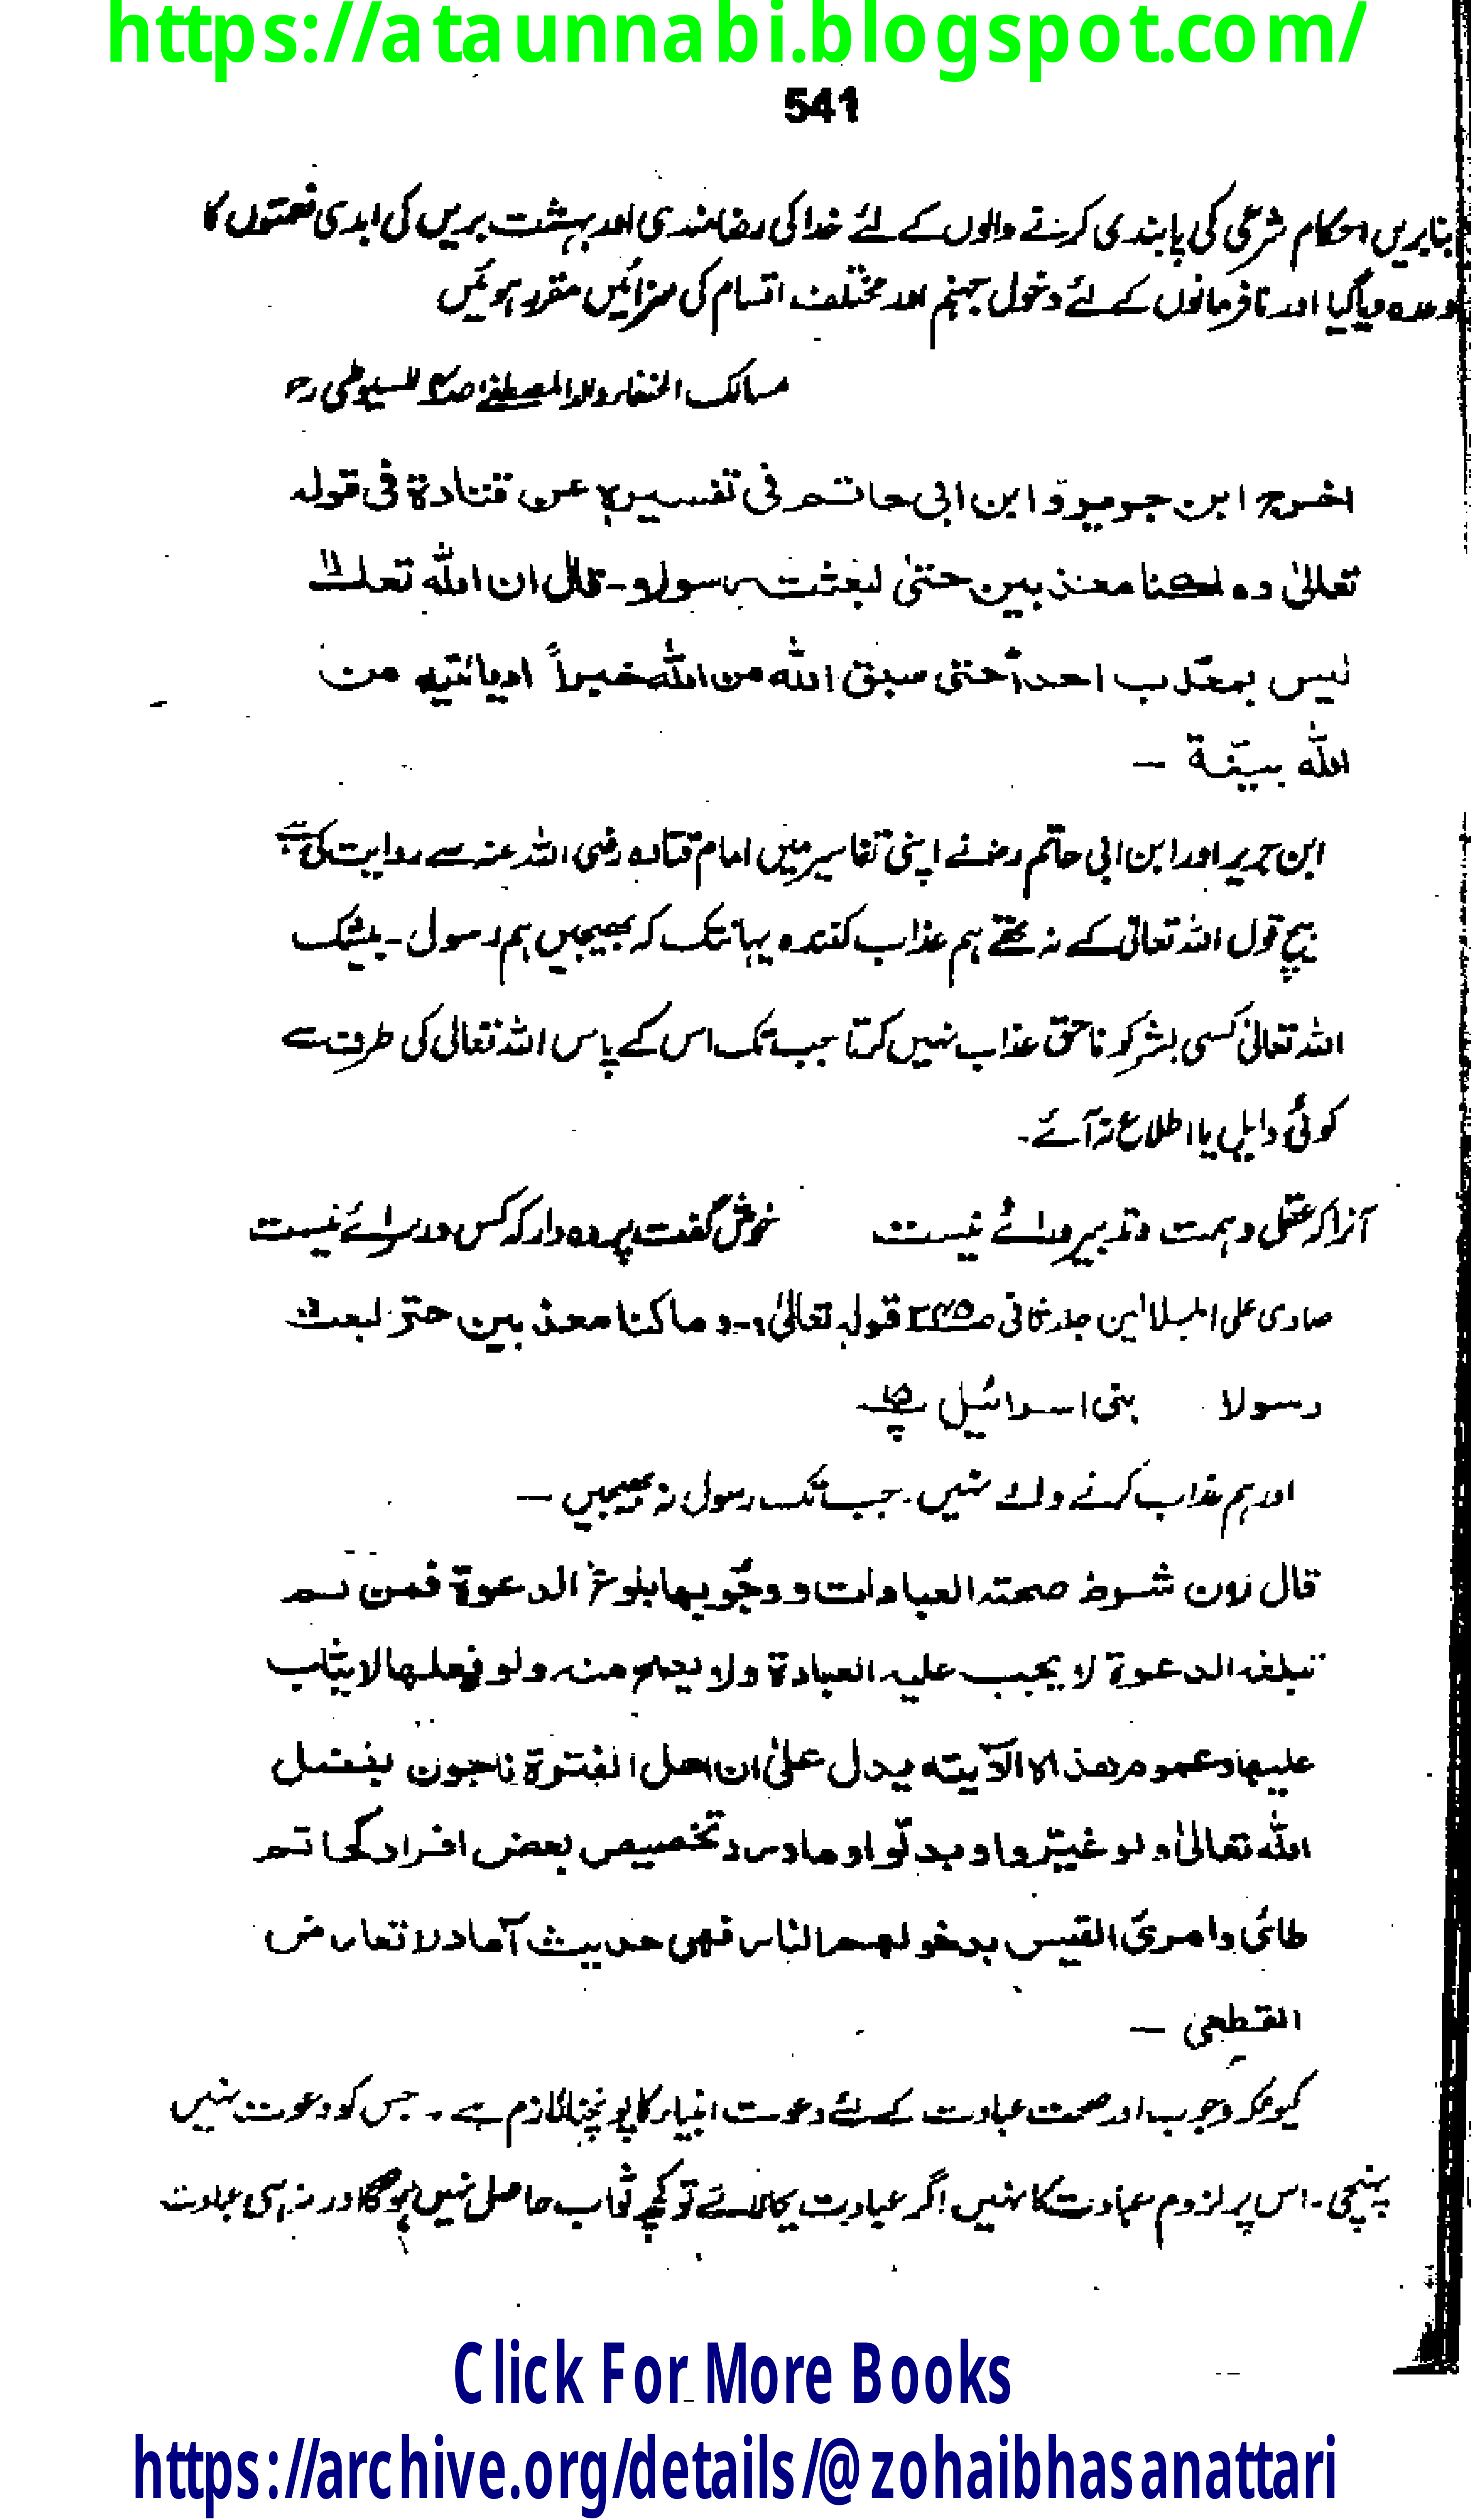 https://ataunnabi.blogspot.com/
541
بنابریں احکام شرعی کی پابندی کرنے والوں کے لئے خدا کی رضامندی اور بہشت بریں کی ابدی نعمتوں کا
وعدہ دیا گیا اور نافرمانوں کے لئے دخول جہنم اور مختلف اقسام کی سزائیں مقرر ہوئیں
مسالک الحنفاء والد المصطفےٰ للسیوطی رح
اخرج ابن جریر و ابن ابی حاتم فی تفسیرہ عن قتادۃ فی قولہ
تعالیٰ وما کنا معذبین حتیٰ نبعث رسولا۔ قال ان اللہ تعالیٰ
لیس بمعذب احداً حتیٰ سبق اللہ من اللہ خبراً او یاتیہ من
اللہ بینۃ ۔
ابن جریر اور ابن ابی حاتم رض نے اپنی تفاسیر میں امام قتادہ رضی اللہ عنہ سے روایت کی ہے
بیچ قول اللہ تعالیٰ کے نہ تھے ہم عذاب کنندہ یہانتک کہ بھیجیں ہم رسول ۔ بیشک
اللہ تعالیٰ کسی بشر کو ناحق عذاب نہیں کرتا جب تک اس کے پاس اللہ تعالیٰ کی طرف سے
کوئی دلیل یا اطلاع نہ آئے ۔
آنرا کہ عقل و ہمت و تدبیر و رائے نیست خوش گفت پردہ دار کہ کس در سرائے نیست
صاوی علی الجلالین جلد ثانی ص قولہ تعالیٰ۔ وما کنا معذبین حتیٰ نبعث
رسولا بنی اسرائیل پ۱۵
اور ہم عذاب کرنے والے نہیں ۔ جب تک رسول نہ بھیجیں ۔
قال لان شرط صحتہ العبادات و وجوبہا بلوغ الدعوۃ فمن لم
تبلغہ الدعوۃ لا یجب علیہ العبادۃ ولا یصح منہ ولو فعلہا لا یثاب
علیہا و عموم ھذہ الآیتہ یدل علیٰ ان اھل الفترۃ ناجون بفضل
اللہ تعالیٰ ولو غیّروا و بدلّوا وماورد تخصیص بعض افراد کحاتم
طائی وامرئ القیس بدخولھم النار فھی حدیث آحاد لا تعارض
القطعی ۔
کیونکہ وجوب اور صحت عبادت کے لئے دعوت انبیاء کا پہونچنا لازم ہے ۔ جس کو دعوت نہیں
پہنچی ۔ اس پر لزوم عبادت کا نہیں اگر عبادت بجالائے تو کچھ ثواب حاصل نہیں ہوگا اور نہ ہی عبادت
Click For More Books
https://archive.org/details/@zohaibhasanattari